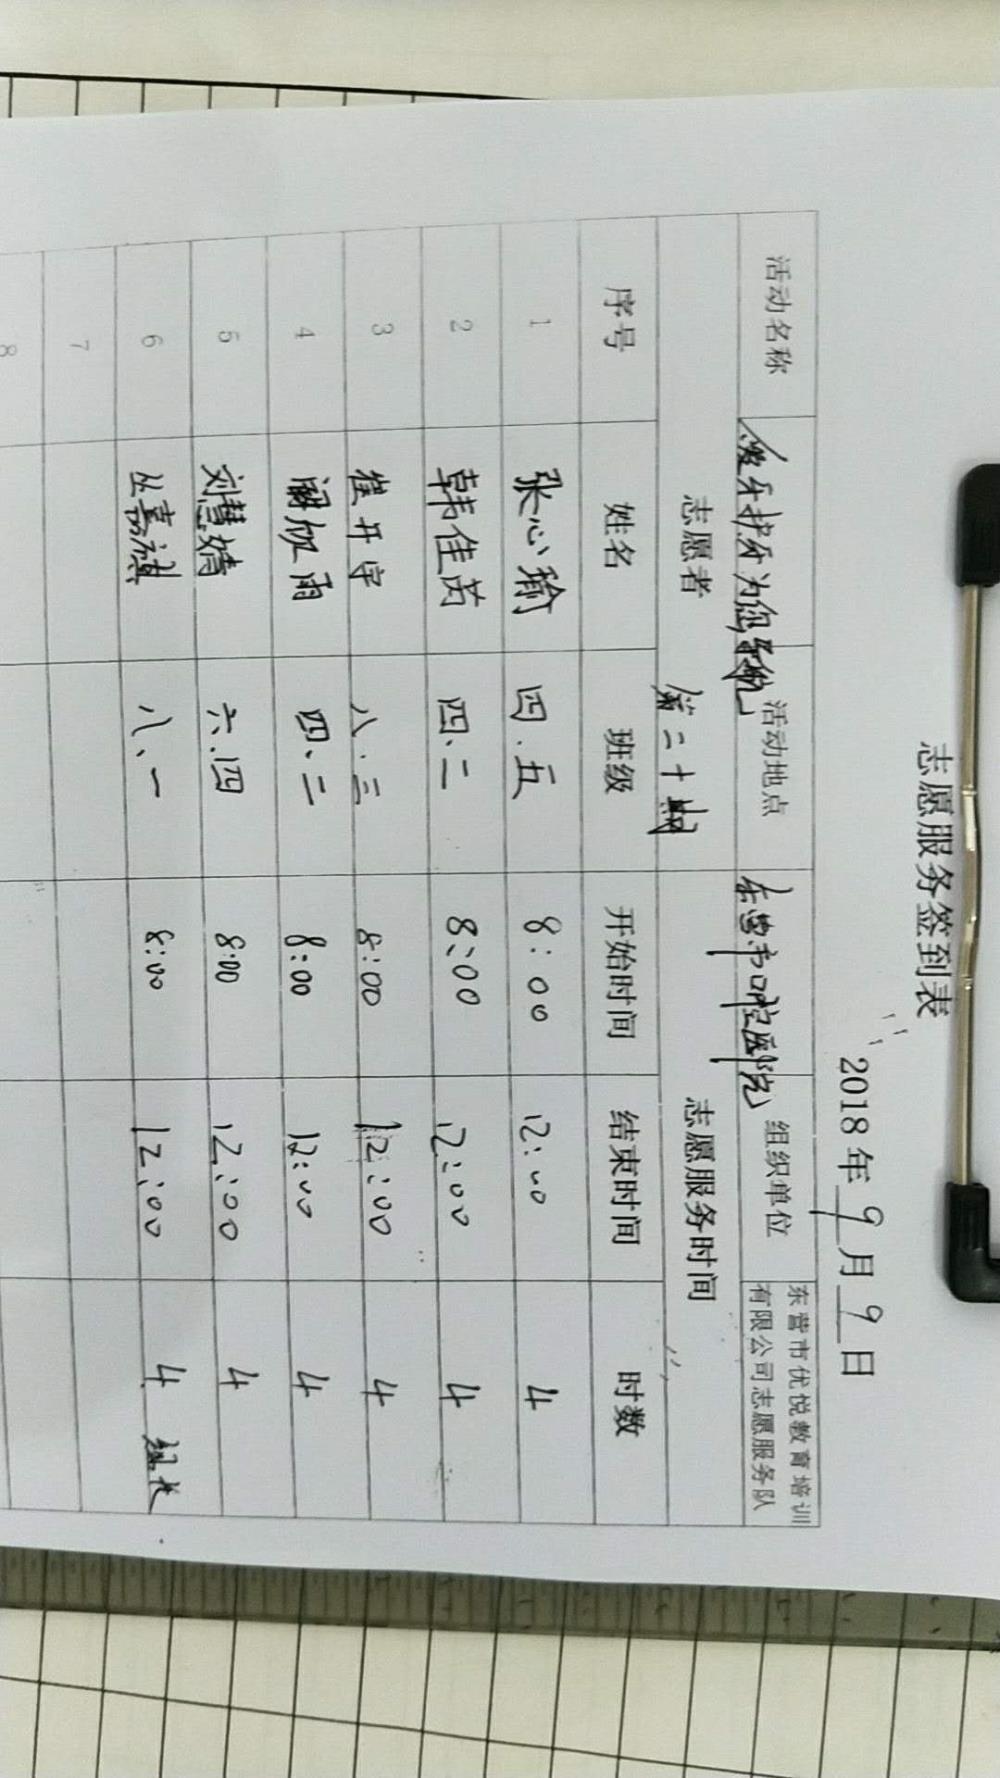 志愿服务签到表
2018年9月9日
活动名称 爱牙护牙为您导航 活动地点 东营市口腔医院 组织单位 东营市优悦教育培训有限公司志愿服务队
第二十期
志愿者 志愿服务时间
序号 姓名 班级 开始时间 结束时间 时数
1 张心瑜 四.五 8:00 12:00 4
2 韩佳芮 四、二 8:00 12:00 4
3 崔开宇 八.三 8:00 12:00 4
4 雨 四、二 8:00 12:00 4
5 刘慧婧 六.四 8:00 12:00 4
6 丛嘉祺 八、一 8:00 12:00 4 组长
7
8